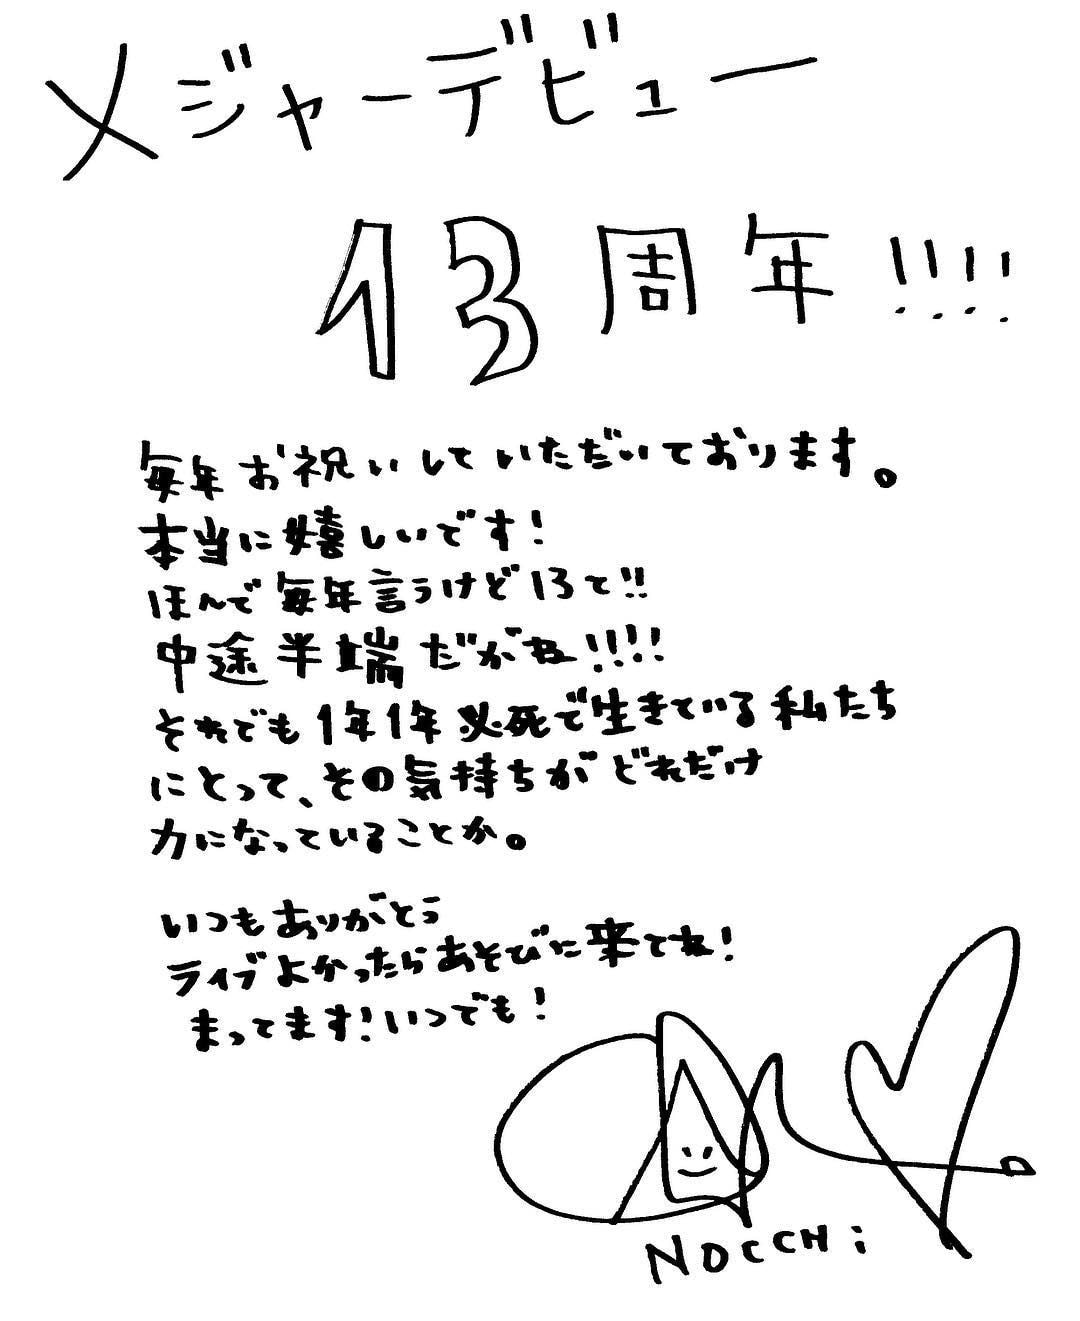 メジャーデビュー
13周年!!!!
毎年お祝いしていただいております。
本当に嬉しいです!
ほんで毎年言うけど13て!!
中途半端だがね!!!!
それでも1年1年必死で生きている私たち
にとって、その気持ちがどれだけ
力になっていることか。
いつもありがとう
ライブよかったらあそびに来てね!
まってます!いつでも!
NOCCHi